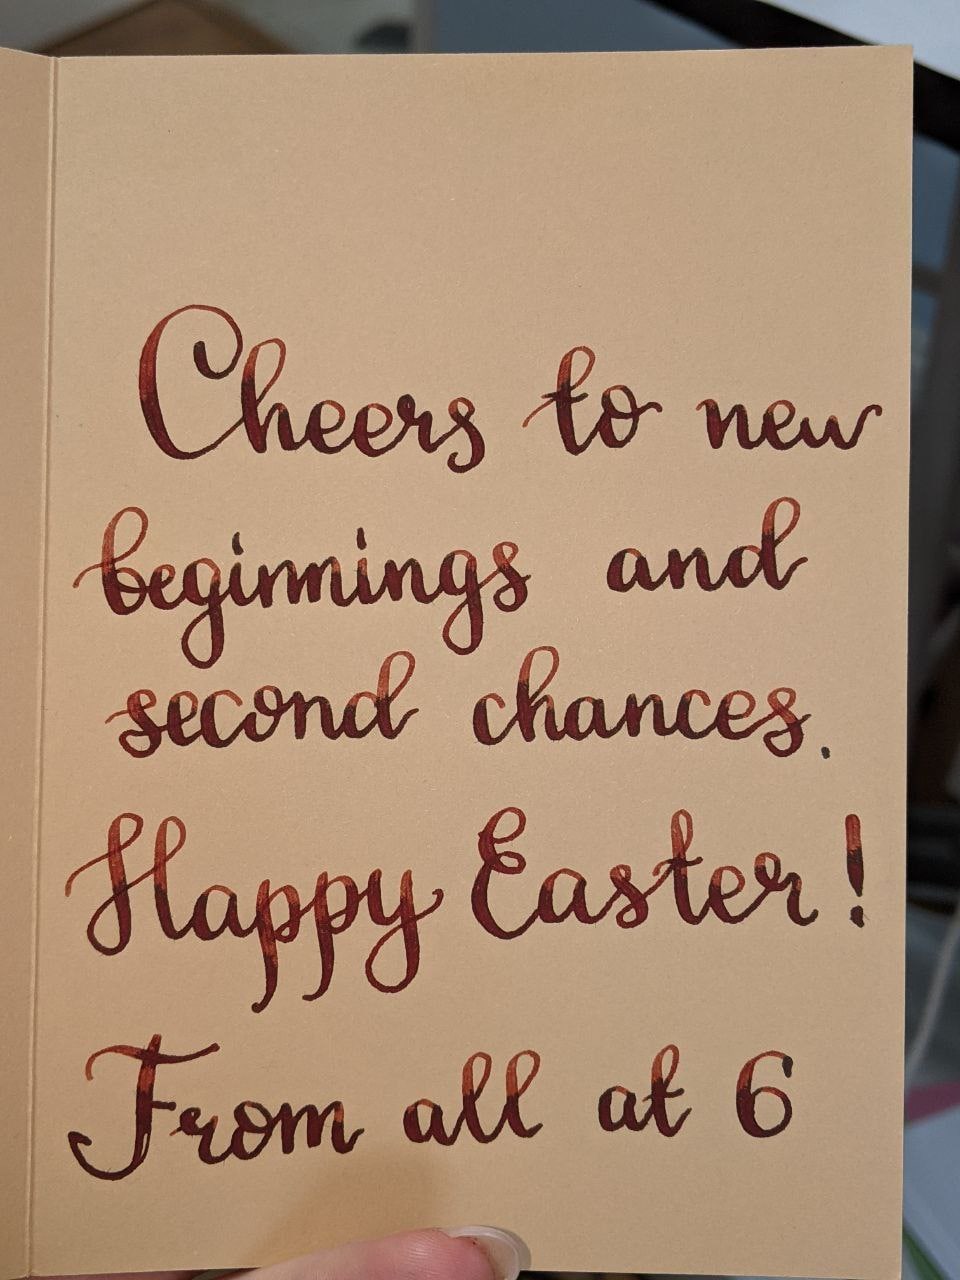 Cheers to new
beginnings and
second chances.
Happy Easter!
From all at 6